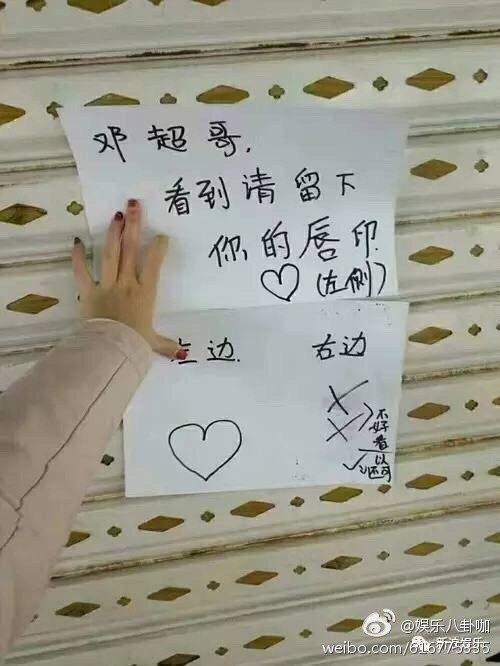 邓超哥,
看到请留下
你的唇印
♡(左侧)
左边. 右边
不好看
还可以
@娱乐八卦咖
weibo.com/616775335